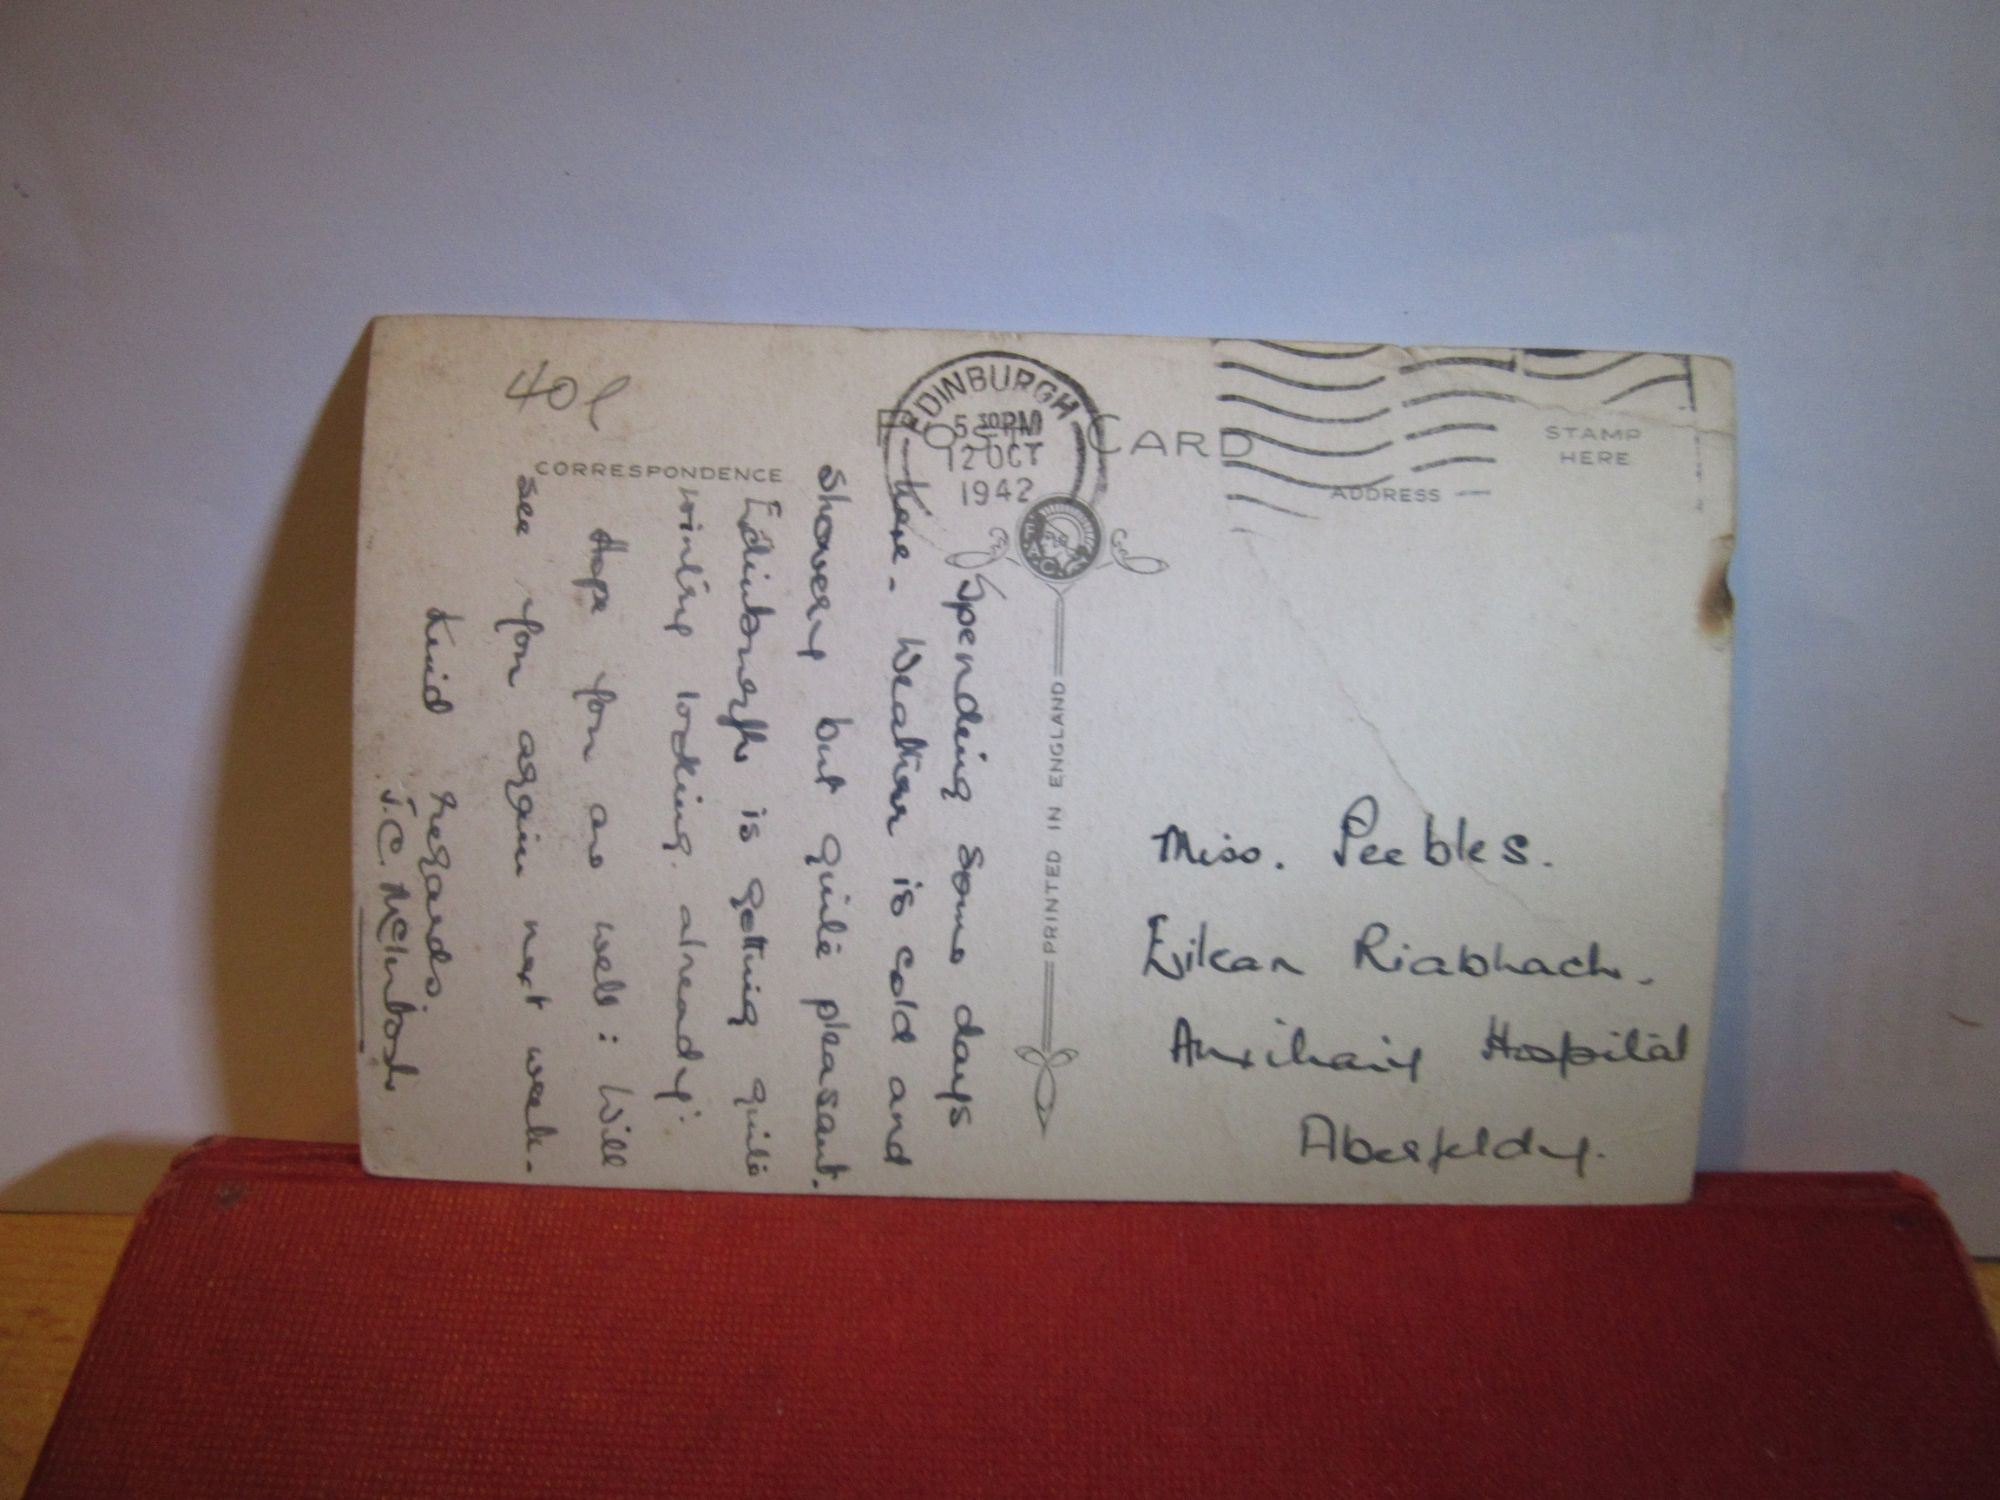 40p
EDINBURGH
5 30 PM
12 OCT
1942
POST CARD
CORRESPONDENCE
ADDRESS
STAMP
HERE
PRINTED IN ENGLAND
Spending some days
here. Weather is cold and
showery but quite pleasant.
Edinburgh is getting quite
wintry looking already.
Hope you are well: Will
see you again next week.
Kind regards
J.C. McIntosh
Miss. Peebles.
Eilean Riabhach.
Auxiliary Hospital
Aberfeldy.